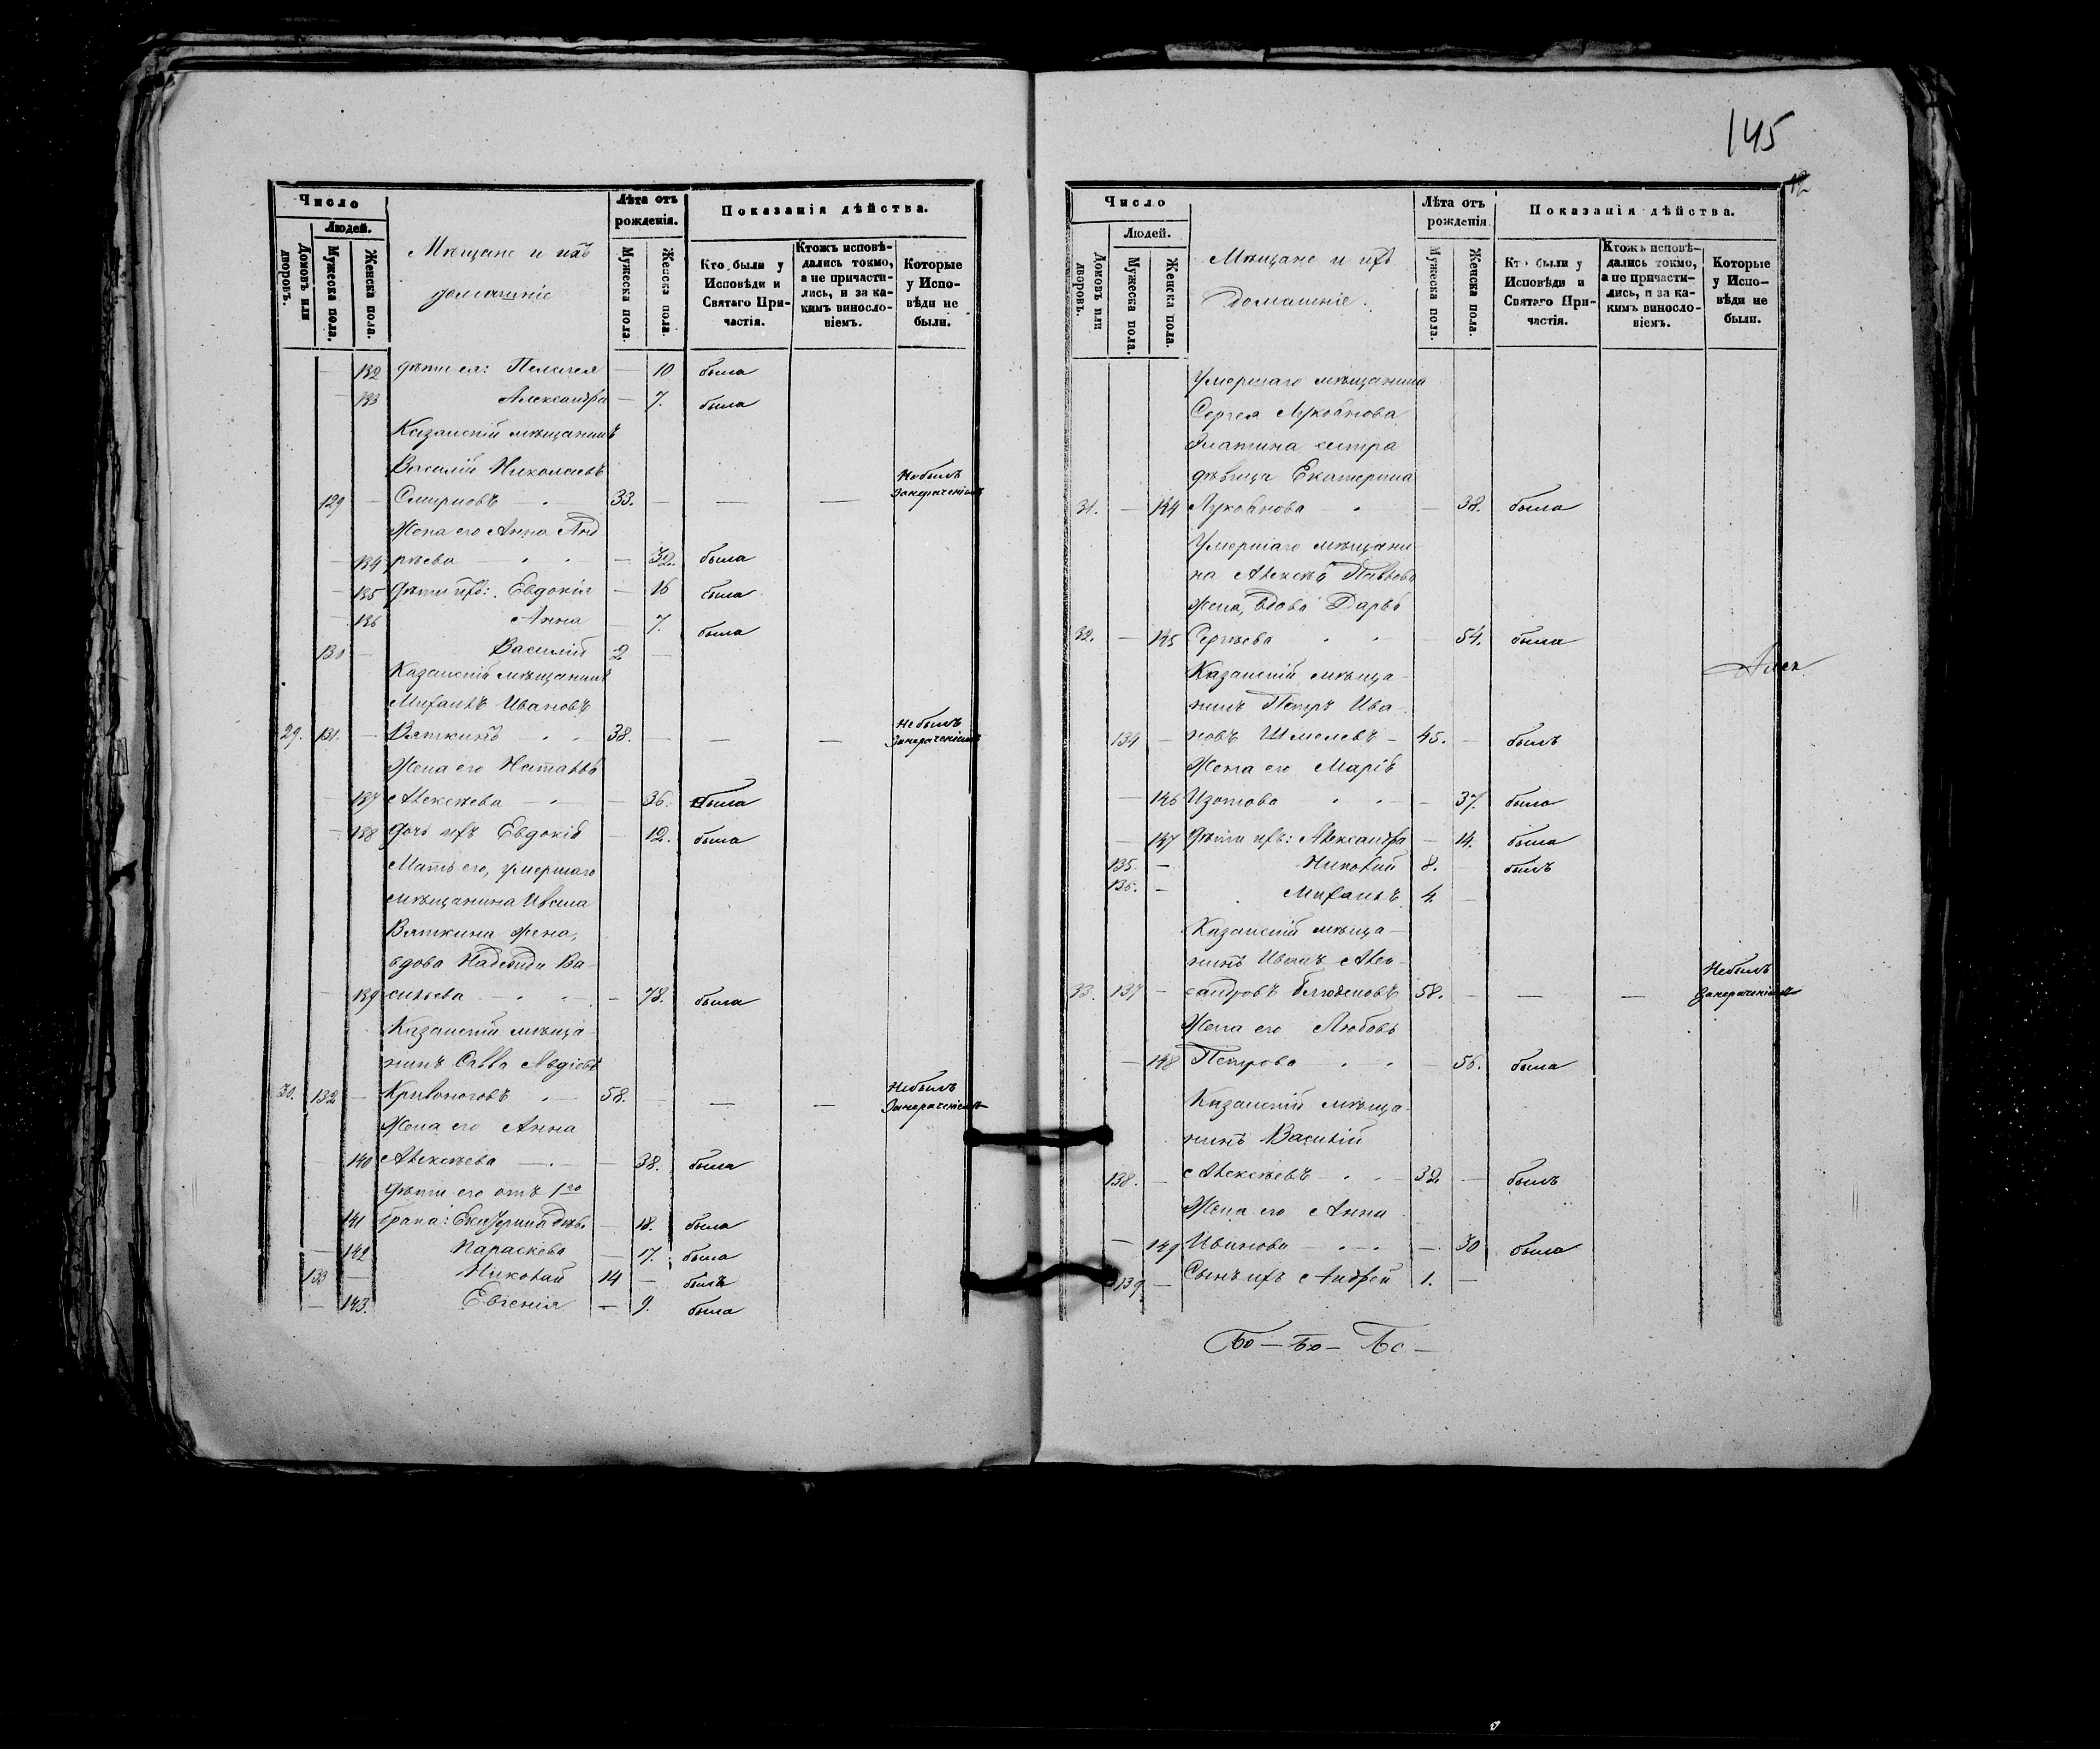 145
12
Число
Людей.
Домовъ или дворовъ.
Мужеска пола.
Женска пола.
Мѣщане и ихъ
домашніе
Лѣта отъ рожденія.
Мужеска пола.
Женска пола.
Показанія дѣйства.
Кто были у Исповѣди и Святаго Причастія.
Ктожъ исповѣдались токмо, а не причастились, и за какимъ винословіемъ.
Которые у Исповѣди не были.
— 132 дѣти ея: Пелагея — 10 была
— 133 Александра — 7. была
Казанскій мѣщанинъ
Василій Николаевъ
129 — Смирновъ — 33. — — — Небылъ
Жена его Анна Анд
— 134 рѣева — 32. была
— 135 Дѣти ихъ: Евдокія — 16 была
— 136 Анна — 7. была
130 — Василій 2 —
Казанскій мѣщанинъ
Михаилъ Ивановъ
29. 131. — Вяткинъ — 38. — — — Небылъ
Жена его Наталья
— 137 Алексѣева — 36. была
— 138 Дочь ихъ Евдокія — 12. была
Мать его, умершаго
мѣщанина Ивана
Вяткина жена,
вдова Надежда Ва
— 139 сильева — 78. была
Казанскій мѣща
нинъ Савва Авдіевъ
30. 132 — Кривоноговъ — 58. — — — Небылъ
Жена его Анна
— 140 Алексѣева — 38. была
Дѣти его отъ 1го
141 брака: Екатерина — 18. была
— 142 Параскева — 17. была
133 — Николай 14 — былъ
— 143. Евгенія — 9. была
Число
Людей.
Домовъ или дворовъ.
Мужеска пола.
Женска пола.
Мѣщане и ихъ
Домашніе.
Лѣта отъ рожденія
Мужеска пола.
Женска пола.
Показанія дѣйства.
Кто были у Исповѣди и Святаго Причастія.
Ктожъ исповѣдались токмо, а не причастились, и за какимъ винословіемъ.
Которые у Исповѣди не были.
Умершаго мѣщанина
Сергея
сестра
дѣвица Екатерина
31. — 144 — 38. была
Умершаго мѣщани
на Алексѣя Павлова
жена, вдова Дарья
32. — 145 Сергѣева — 54. была
Казанскій мѣща
нинъ Петръ Ива
134 — новъ Шмелевъ — 45. — былъ
Жена его Марія
— 146 Изотова — 37. была
— 147 Дѣти ихъ: Александра — 14. была
135. — Николай 8. — былъ
136. — Михаилъ 4. —
Казанскій мѣща
нинъ Иванъ Алек
33. 137 — сандровъ 58. — — — Небылъ
Жена его Любовь
— 148 Петрова — 56. была
Казанскій мѣща
нинъ Василій
138. — Алексѣевъ — 32 — былъ
Жена его Анна
— 149 Иванова — 30 была
139 — Сынъ ихъ Андрей 1. —